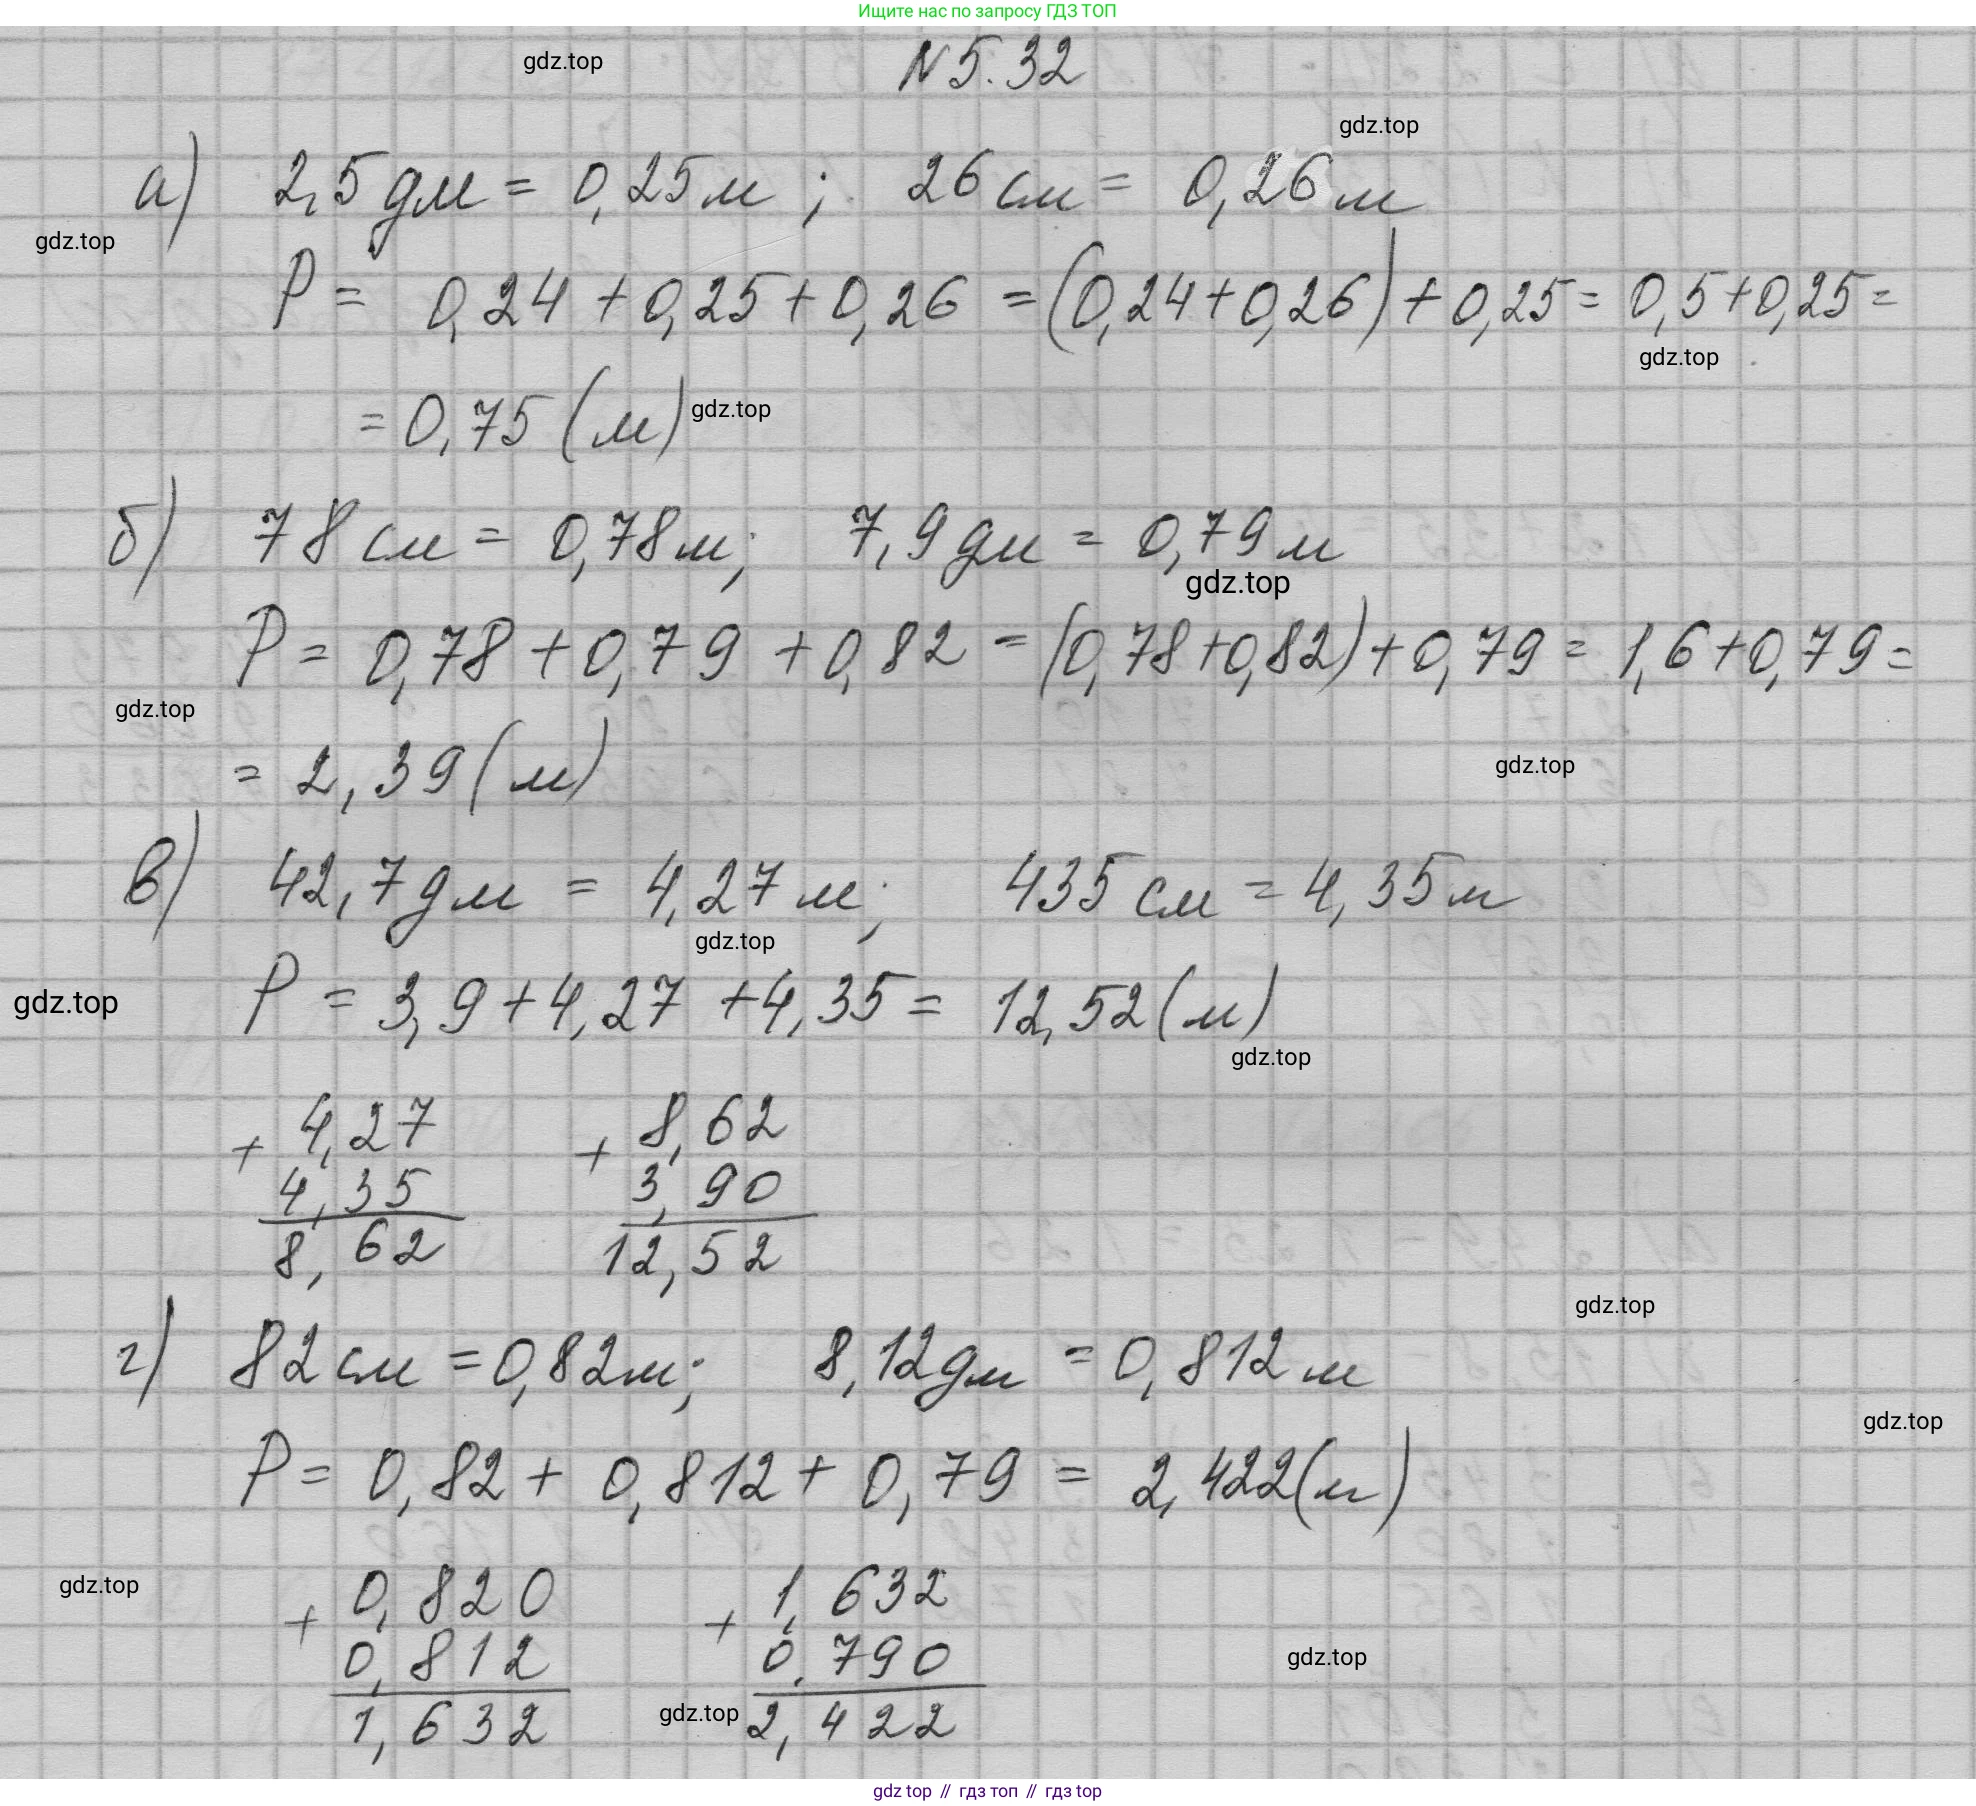 Ищите нас по запросу ГДЗ ТОП
gdz.top
N 5.32
gdz.top
а) 2,5 дм = 0,25 м ; 26 см = 0,26 м
gdz.top
P = 0,24 + 0,25 + 0,26 = (0,24 + 0,26) + 0,25 = 0,5 + 0,25 =
gdz.top
= 0,75 (м) gdz.top
б) 78 см = 0,78 м; 7,9 дм = 0,79 м
gdz.top
P = 0,78 + 0,79 + 0,82 = (0,78 + 0,82) + 0,79 = 1,6 + 0,79 =
gdz.top
= 2,39 (м)
gdz.top
в) 42,7 дм = 4,27 м; 435 см = 4,35 м
gdz.top
gdz.top
P = 3,9 + 4,27 + 4,35 = 12,52 (м)
gdz.top
+ 4,27 + 8,62
4,35 3,90
8,62 12,52
gdz.top
г) 82 см = 0,82 м; 8,12 дм = 0,812 м
gdz.top
P = 0,82 + 0,812 + 0,79 = 2,422 (м)
gdz.top
+ 0,820 + 1,632
0,812 0,790
gdz.top
gdz.top
1,632 2,422
gdz top // гдз топ // гдз top